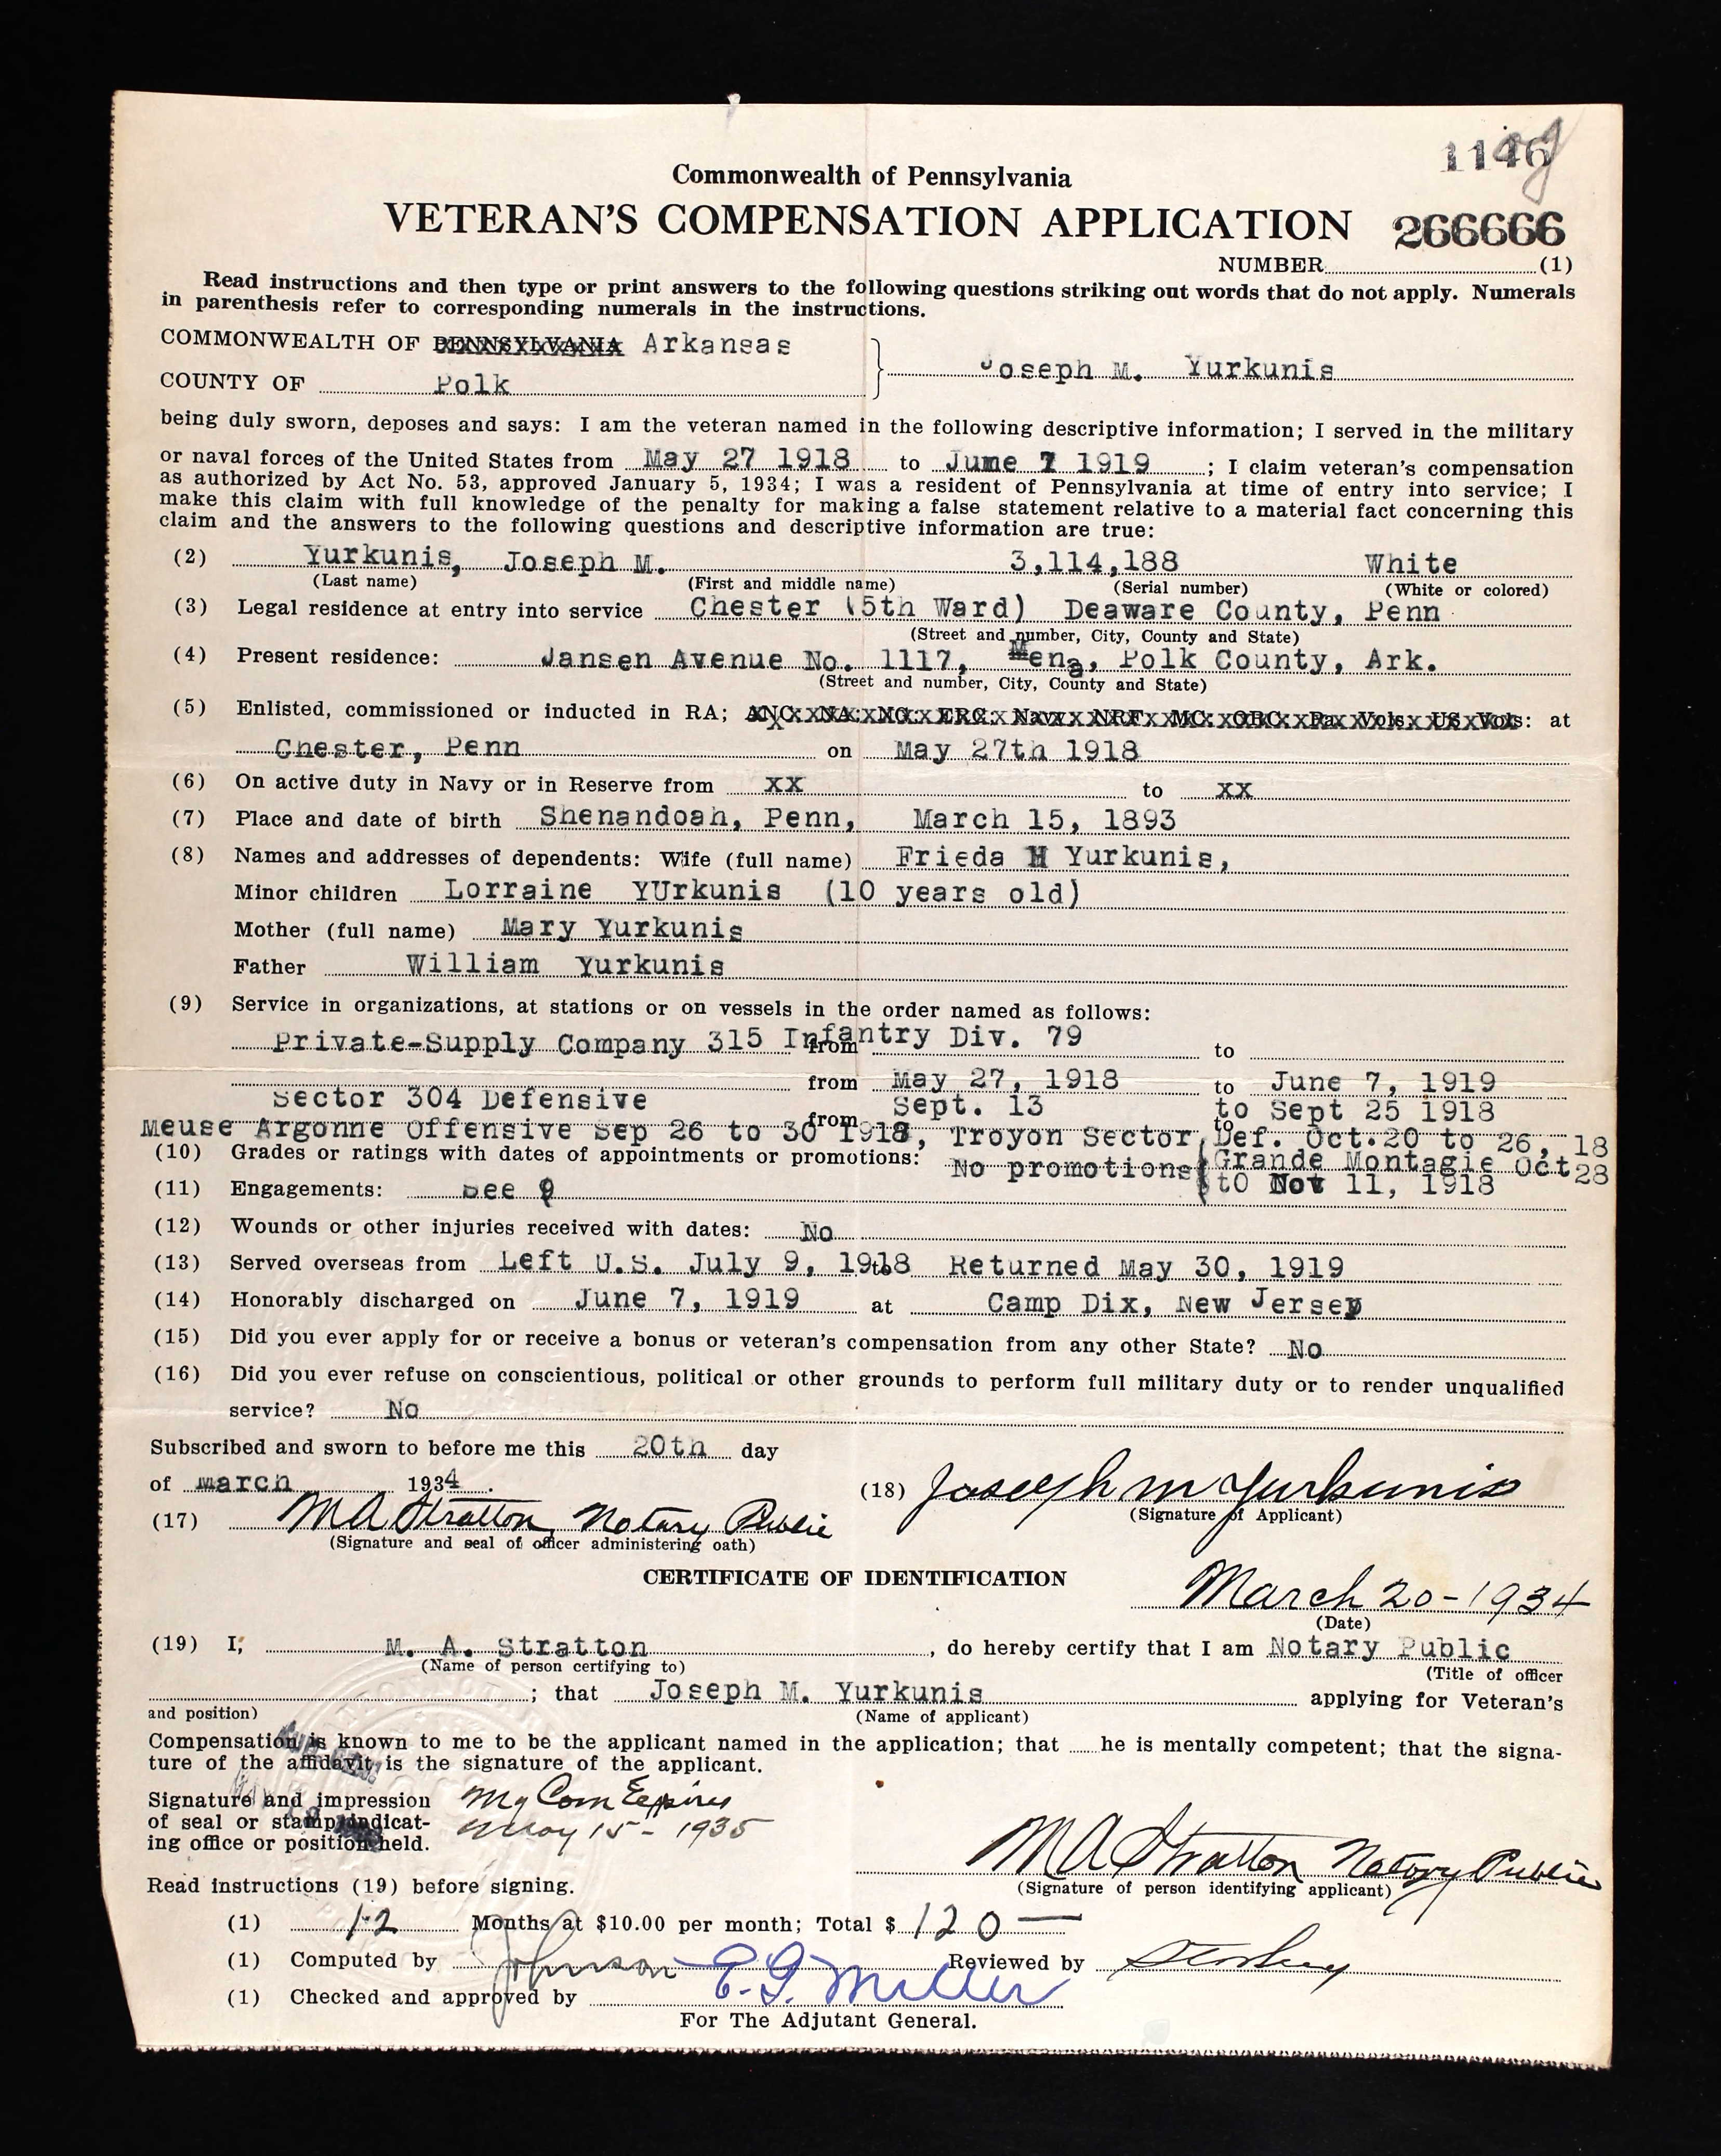 1146
Commonwealth of Pennsylvania
VETERAN'S COMPENSATION APPLICATION 266666
NUMBER (1)
Read instructions and then type or print answers to the following questions striking out words that do not apply. Numerals
in parenthesis refer to corresponding numerals in the instructions.
COMMONWEALTH OF PENNSYLVANIA Arkansas
Joseph M. Yurkunis
COUNTY OF Polk
being duly sworn, deposes and says: I am the veteran named in the following descriptive information; I served in the military
or naval forces of the United States from May 27 1918 to June 7 1919 ; I claim veteran's compensation
as authorized by Act No. 53, approved January 5, 1934; I was a resident of Pennsylvania at time of entry into service; I
make this claim with full knowledge of the penalty for making a false statement relative to a material fact concerning this
claim and the answers to the following questions and descriptive information are true:
(2) Yurkunis, Joseph M. 3,114,188 White
(Last name) (First and middle name) (Serial number) (White or colored)
(3) Legal residence at entry into service Chester (5th Ward) Deaware County, Penn
(Street and number, City, County and State)
(4) Present residence: Jansen Avenue No. 1117, Mena, Polk County, Ark.
(Street and number, City, County and State)
(5) Enlisted, commissioned or inducted in RA; ANC: NA: NG: ERC: Navy: NRF: MC: ORC: Pa. Vols: US Vols: at
Chester, Penn on May 27th 1918
(6) On active duty in Navy or in Reserve from xx to xx
(7) Place and date of birth Shenandoah, Penn, March 15, 1893
(8) Names and addresses of dependents: Wife (full name) Frieda H Yurkunis,
Minor children Lorraine YUrkunis (10 years old)
Mother (full name) Mary Yurkunis
Father William Yurkunis
(9) Service in organizations, at stations or on vessels in the order named as follows:
Private-Supply Company 315 Infantry Div. 79 from to
from May 27, 1918 to June 7, 1919
Sector 304 Defensive from Sept. 13 to Sept 25 1918
Meuse Argonne Offensive Sep 26 to 30 1918, Troyon Sector, Def. Oct.20 to 26, 18
(10) Grades or ratings with dates of appointments or promotions: No promotions (Grande Montagie Oct 28
(11) Engagements: See 9 to Nov 11, 1918
(12) Wounds or other injuries received with dates: No
(13) Served overseas from Left U.S. July 9, 1918 to Returned May 30, 1919
(14) Honorably discharged on June 7, 1919 at Camp Dix, New Jersey
(15) Did you ever apply for or receive a bonus or veteran's compensation from any other State? No
(16) Did you ever refuse on conscientious, political or other grounds to perform full military duty or to render unqualified
service? No
Subscribed and sworn to before me this 20th day
of march 1934.
(18) Joseph M Yurkunis
(Signature of Applicant)
(17) M A Stratton, Notary Public
(Signature and seal of officer administering oath)
CERTIFICATE OF IDENTIFICATION
March 20-1934
(Date)
(19) I, M. A. Stratton, do hereby certify that I am Notary Public
(Name of person certifying to) (Title of officer
; that Joseph M. Yurkunis applying for Veteran's
and position) (Name of applicant)
Compensation is known to me to be the applicant named in the application; that he is mentally competent; that the signa-
ture of the affidavit is the signature of the applicant.
Signature and impression
of seal or stamp indicat-
ing office or position held.
My Com Expires
May 15 - 1935
M A Stratton Notary Public
(Signature of person identifying applicant)
Read instructions (19) before signing.
(1) 12 Months at $10.00 per month; Total $ 120 —
(1) Computed by Johnson Reviewed by
(1) Checked and approved by E. G. Miller
For The Adjutant General.